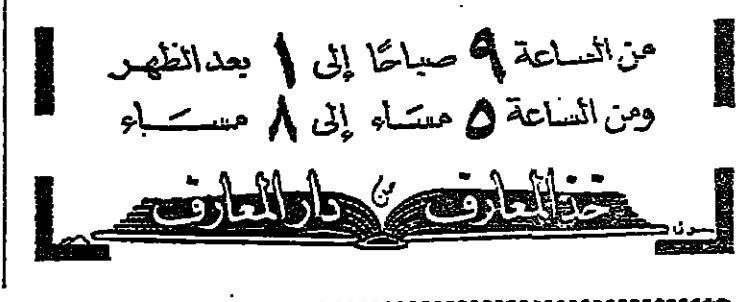 من الساعة ٩ صباحًا إلى ١ بعد الظهر
ومن الساعة ٥ مساء إلى ٨ مساء
خذ المعارف من دار المعارف